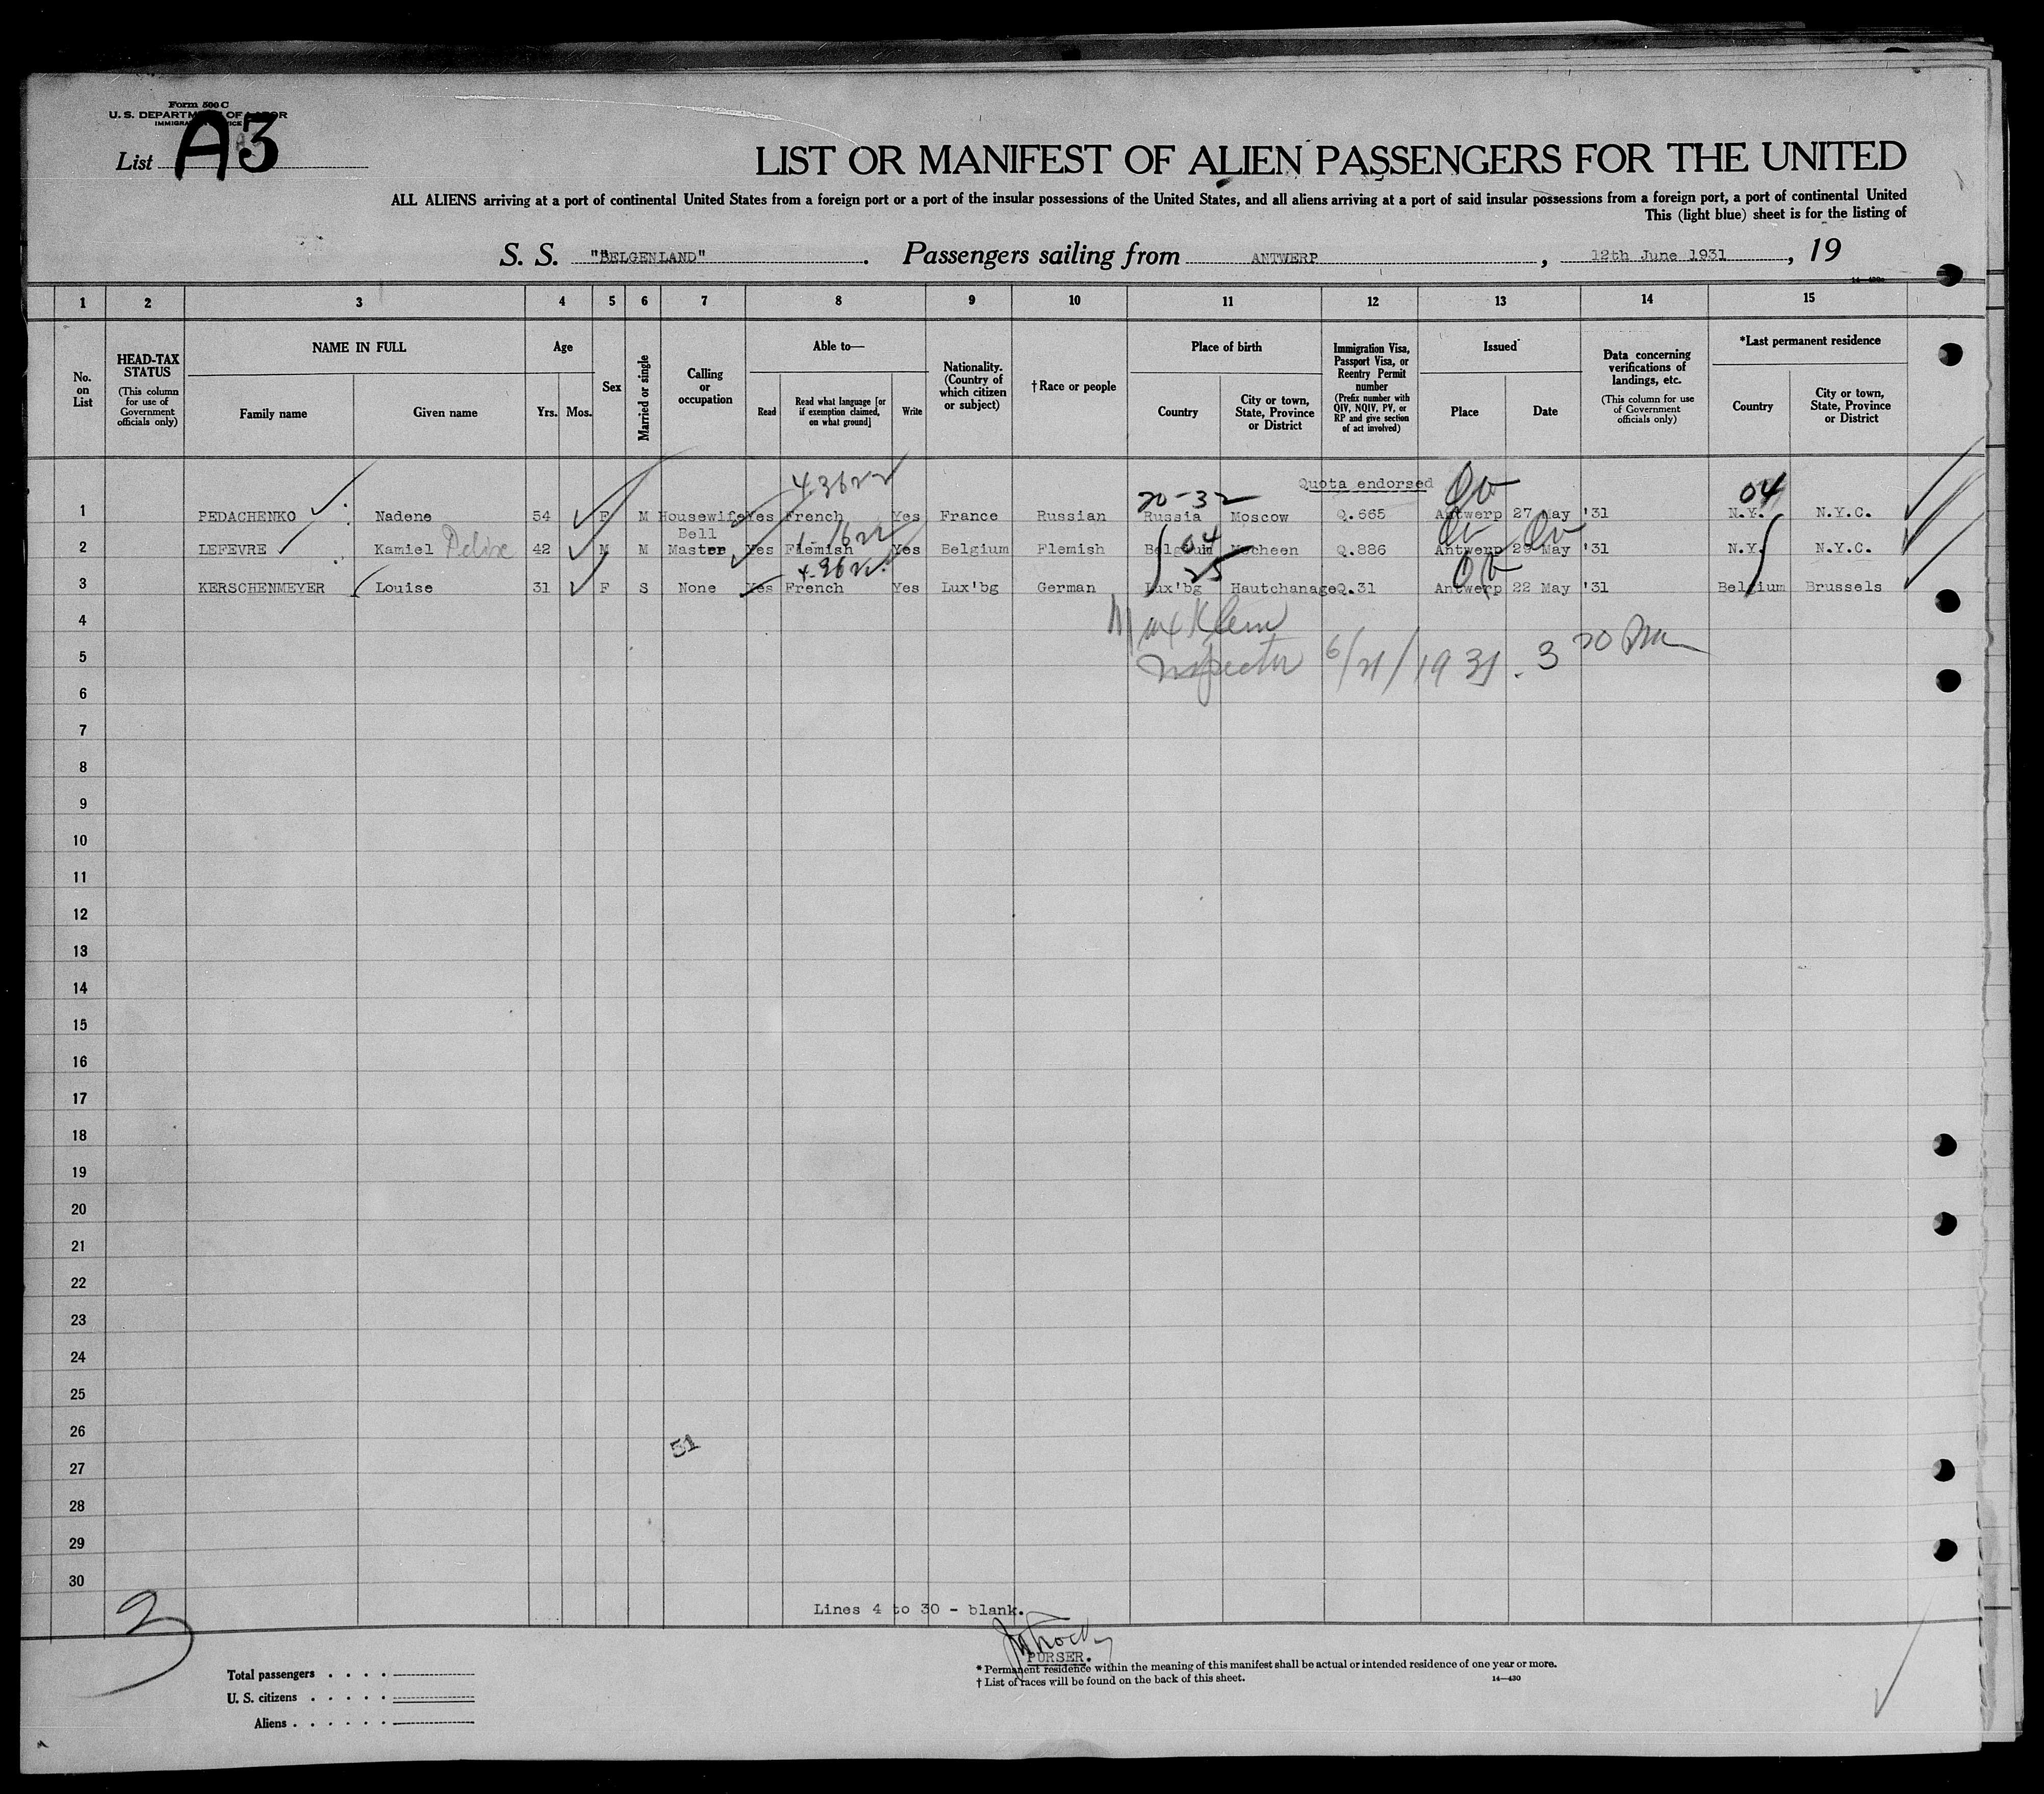 Form 500 C
U. S. DEPARTMENT OF LABOR
IMMIGRATION SERVICE
List A3
LIST OR MANIFEST OF ALIEN PASSENGERS FOR THE UNITED
ALL ALIENS arriving at a port of continental United States from a foreign port or a port of the insular possessions of the United States, and all aliens arriving at a port of said insular possessions from a foreign port, a port of continental United
This (light blue) sheet is for the listing of
S. S. "BELGENLAND". Passengers sailing from ANTWERP, 12th June 1931, 19
14—430
1 2 3 4 5 6 7 8 9 10 11 12 13 14 15
No. on List
HEAD-TAX STATUS (This column for use of Government officials only)
NAME IN FULL Family name Given name
Age Yrs. Mos.
Sex
Married or single
Calling or occupation
Able to— Read Read what language [or if exemption claimed, on what ground] Write
Nationality. (Country of which citizen or subject)
† Race or people
Place of birth Country City or town, State, Province or District
Immigration Visa, Passport Visa, or Reentry Permit number (Prefix number with QIV, NQIV, PV, or RP and give section of act involved)
Issued Place Date
Data concerning verifications of landings, etc. (This column for use of Government officials only)
*Last permanent residence Country City or town, State, Province or District
43622 20-32 Quota endorsed 04
1 PEDACHENKO Nadene 54 F M Housewife Yes French Yes France Russian Russia Moscow Q.665 Antwerp 27 May '31 N.Y. N.Y.C.
Bell 1622 04
2 LEFEVRE Kamiel 42 M M Master Yes Flemish Yes Belgium Flemish Belgium Mecheen Q.886 Antwerp 29 May '31 N.Y. N.Y.C.
43622 25
3 KERSCHENMEYER Louise 31 F S None Yes French Yes Lux'bg German Lux'bg Hautchanage Q.31 Antwerp 22 May '31 Belgium Brussels
4 Max Klein
5 Inspector 6/21/1931. 3 20 Pm
6
7
8
9
10
11
12
13
14
15
16
17
18
19
20
21
22
23
24
25
26
51
27
28
29
30
3
Lines 4 to 30 - blank.
PURSER.
Total passengers
U. S. citizens
Aliens
* Permanent residence within the meaning of this manifest shall be actual or intended residence of one year or more.
† List of races will be found on the back of this sheet.
14—430